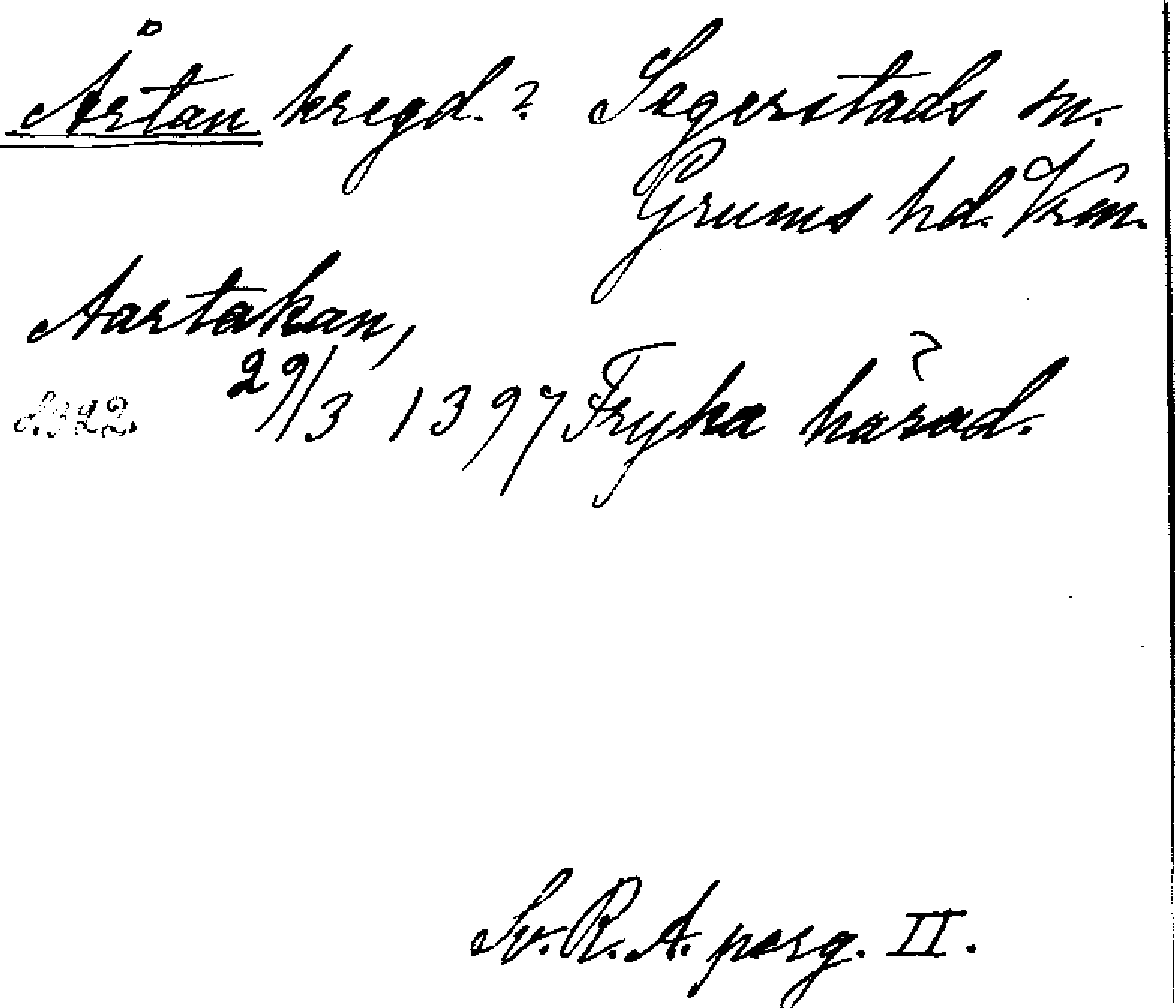 Årtan kregd.? Segerstads sn.
Grums hd. Vrm.
Aartakan,
29/3 1397 Fryka härad.
S. 322.
Sv. R. A. perg. II.